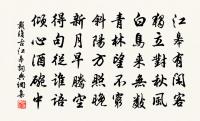 江皋有閑客
獨立對秋風
白鳥來無數
青林望不窮
斜陽方照晚
新月早騰空
得句從誰語
傾心酒碗中
戴復古江皋新月詞典網集